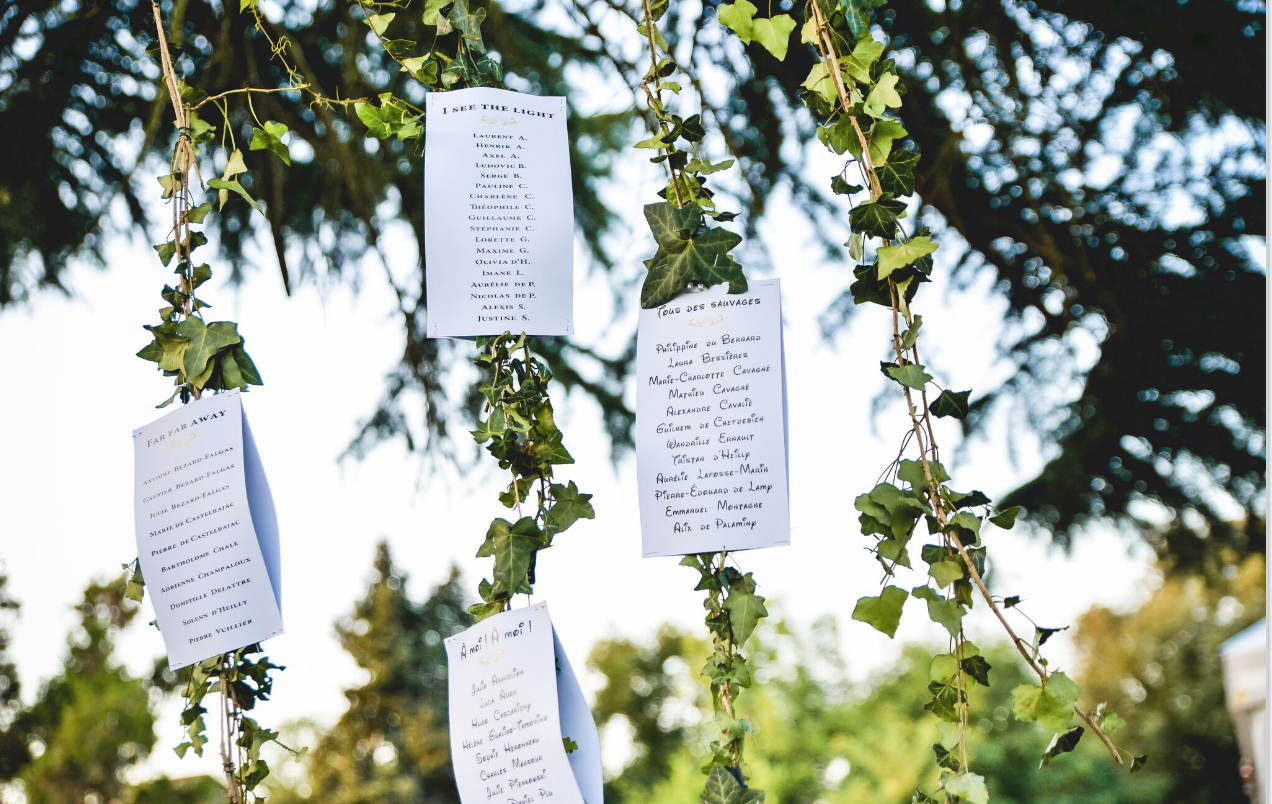 I SEE THE LIGHT
LAURENT A.
HENRIK A.
AXEL A.
LUDOVIC B.
SERGE B.
PAULINE C.
CHARLÈNE C.
THÉOPHILE C.
GUILLAUME C.
STÉPHANIE C.
LORETTE G.
MAXIME G.
OLIVIA D'H.
IMANE L.
AURÉLIE DE P.
NICOLAS DE P.
ALEXIS S.
JUSTINE S.
TOUS DES SAUVAGES
PHILIPPINE DU BERNARD
LAURA BESSIÈRES
MARIE-CHARLOTTE CAVAGNÉ
MATHIEU CAVAGNÉ
ALEXANDRE CAVALIÉ
GUILHEM DE CHEFDEBIEN
WANDRILLE ERNAULT
TRISTAN D'HEILLY
AURÉLIE LAFOSSE-MARIN
PIERRE-ÉDOUARD DE LAMY
EMMANUEL MONTAGNE
ALIX DE PALAMINY
FAR FAR AWAY
ANTOINE BEZARD-FALGAS
GAUTIER BEZARD-FALGAS
JULIE BEZARD-FALGAS
MARIE DE CASTELBAJAC
PIERRE DE CASTELBAJAC
BARTHOLOME CHALE
ADRIENNE CHAMPALOUX
DOMITILLE DELATTRE
SOLENN D'HEILLY
PIERRE VUILLIER
À MOI ! À MOI !
JULIE
LUCA
HUGO
HÉLÈNE
SOPHIE
CHARLES MANSOUR
JULIE PIENKOWSKI
DANIEL